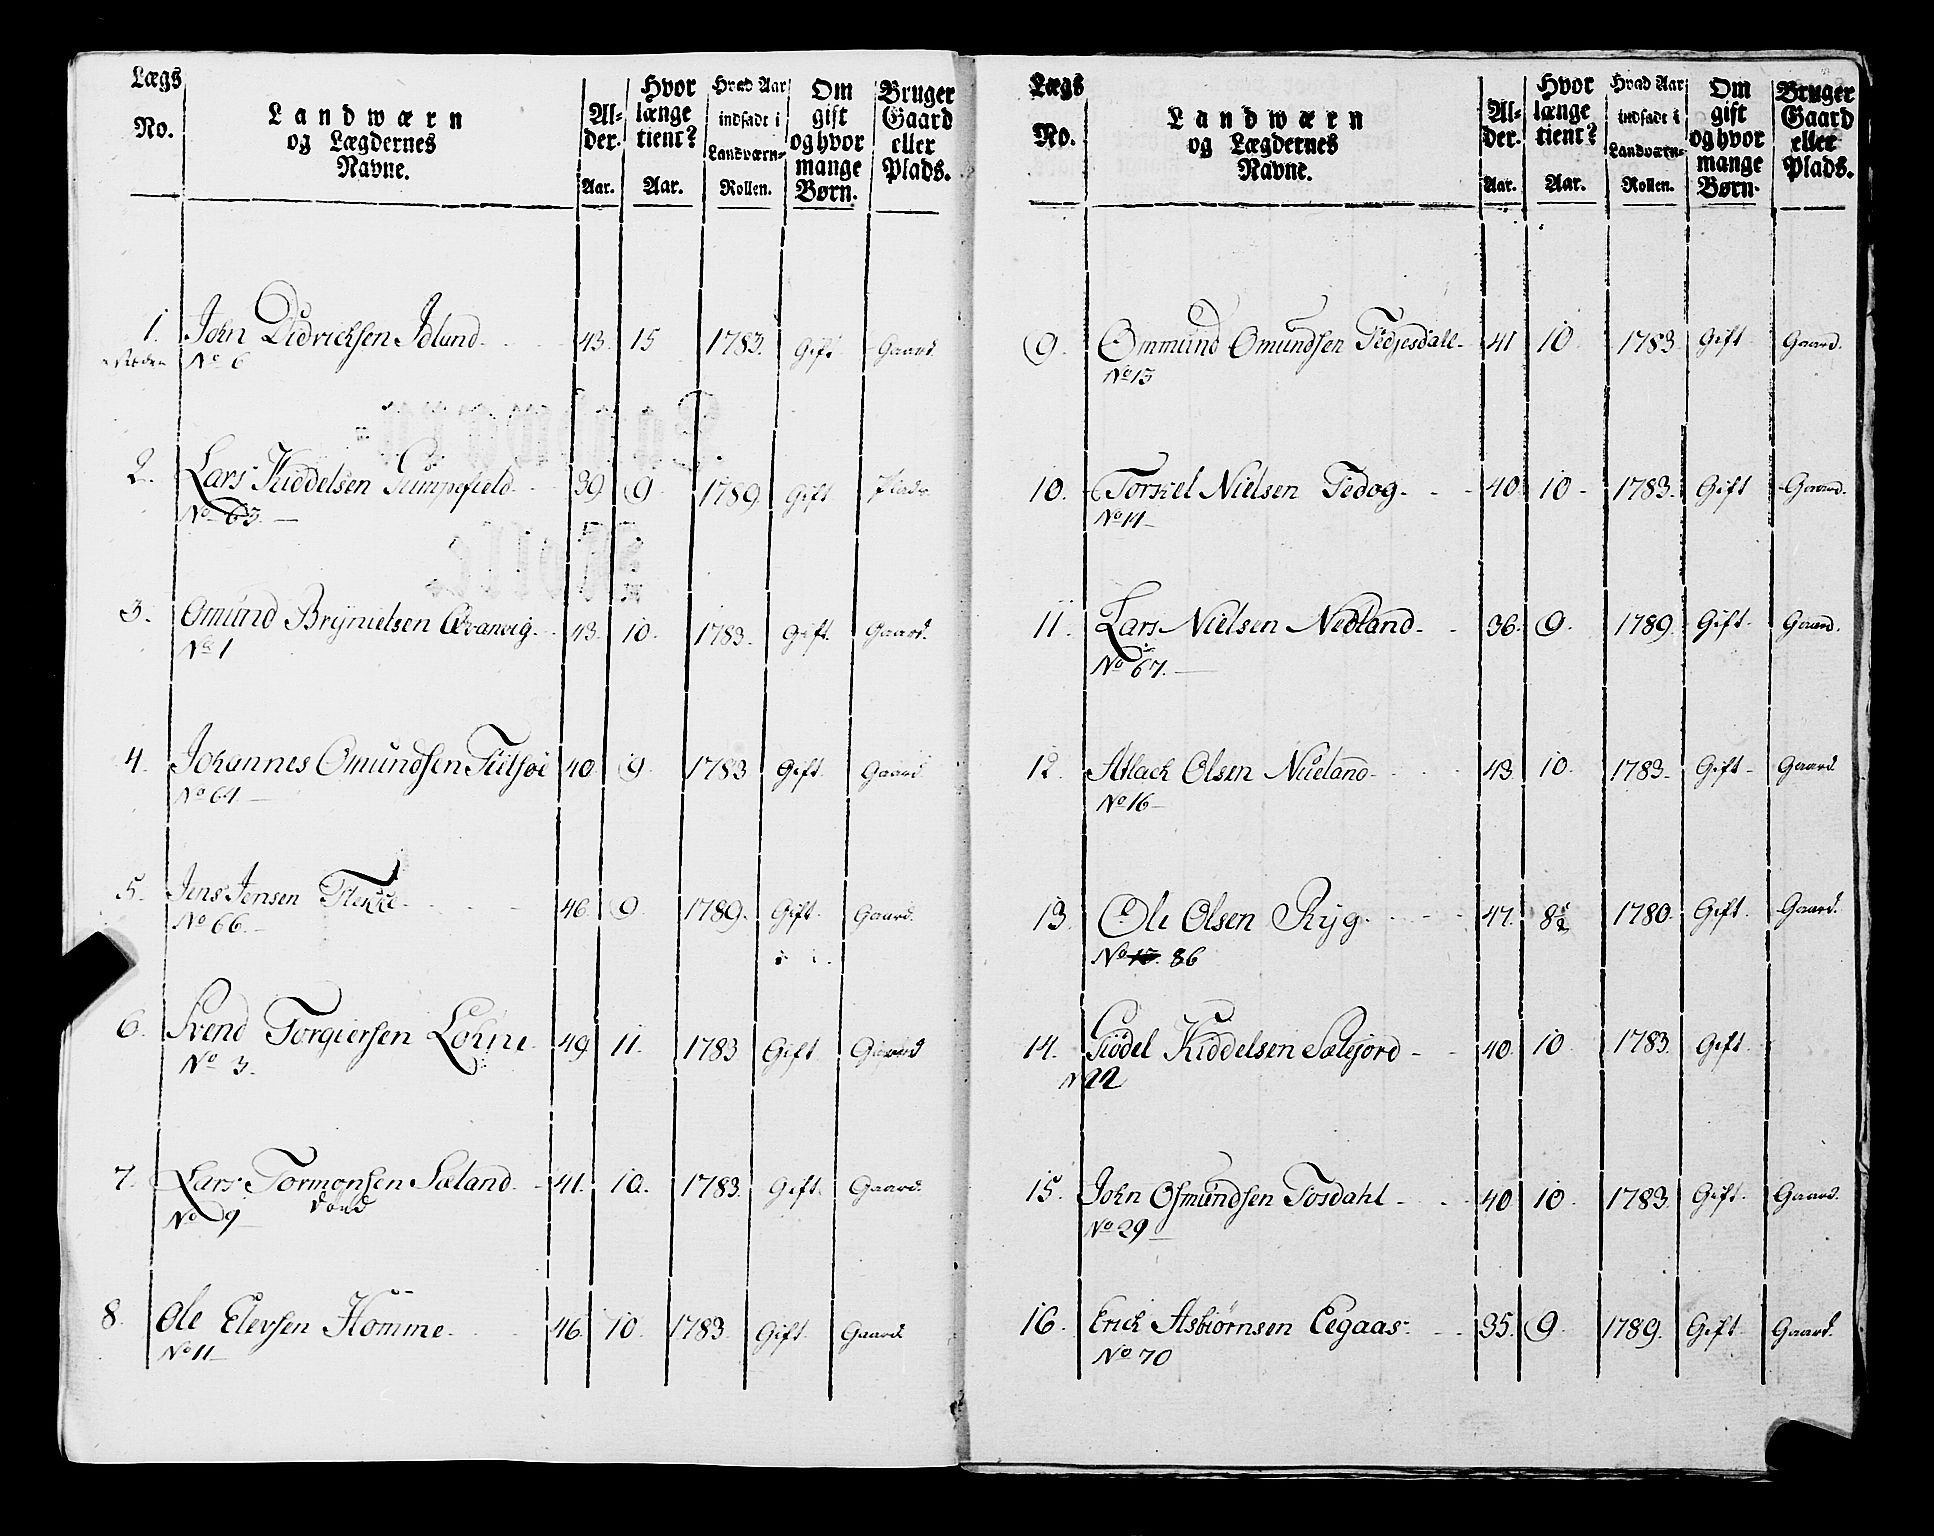 Lægs No. | Landwærn og Lægdernes Navne. | Alder. Aar. | Hvor længe tient? Aar. | Hvad Aar indsadt i Landværn-Rollen. | Om gift og hvor mange Børn. | Bruger Gaard eller Plads.
1. John Didrichsen Idland. 43. 15 1783. Gift Gaard.
No 6
2. Lars Kiddelsen 39 9 1789. Gift Plads
No 63.
3. Omund Brynielsen Qvanvig. 43. 10. 1783. Gift. Gaard.
No 1
4. Johannes Omundsen 40 9. 1783 Gift. Gaard.
No 64
5. Jens Jensen 46. 9. 1789. Gift. Gaard.
No 66.
6. Svend Torgiersen Lohne 49 11. 1783 Gift Gaard
No 3.
7. Lars Tormonsen Sæland. 41. 10. 1783. Gift. Gaard.
død
No 9
8. Ole Elevsen Homme. 46. 10. 1783. Gift. Gaard.
No 11
Lægs No. | Landwærn og Lægdernes Navne. | Alder. Aar. | Hvor længe tient? Aar. | Hvad Aar indsadt i Landværn-Rollen. | Om gift og hvor mange Børn. | Bruger Gaard eller Plads.
9. Ommund Omundsen 41 10. 1783. Gift Gaard.
No 13
10. Torkiel Nielsen Tedog. 40. 10 1783. Gift Gaard.
No 14
11. Lars Nielsen Nedland. 36. 9. 1789. Gift. Gaard.
No 67.
12. Aslach Olsen Nueland. 43 10. 1783. Gift Gaard.
No 16
13. Ole Olsen Ryg. 47. 8½ 1780. Gift. Gaard.
No 86
14. Giødel Kiddelsen Sælejord 40. 10 1783. Gift.
N 22
15. John Osmundsen Tosdahl 40 10 1783. Gift. Gaard.
No 29
16. Erick Asbiørnsen Eegaas. 35. 9. 1789. Gift Gaard.
No 70